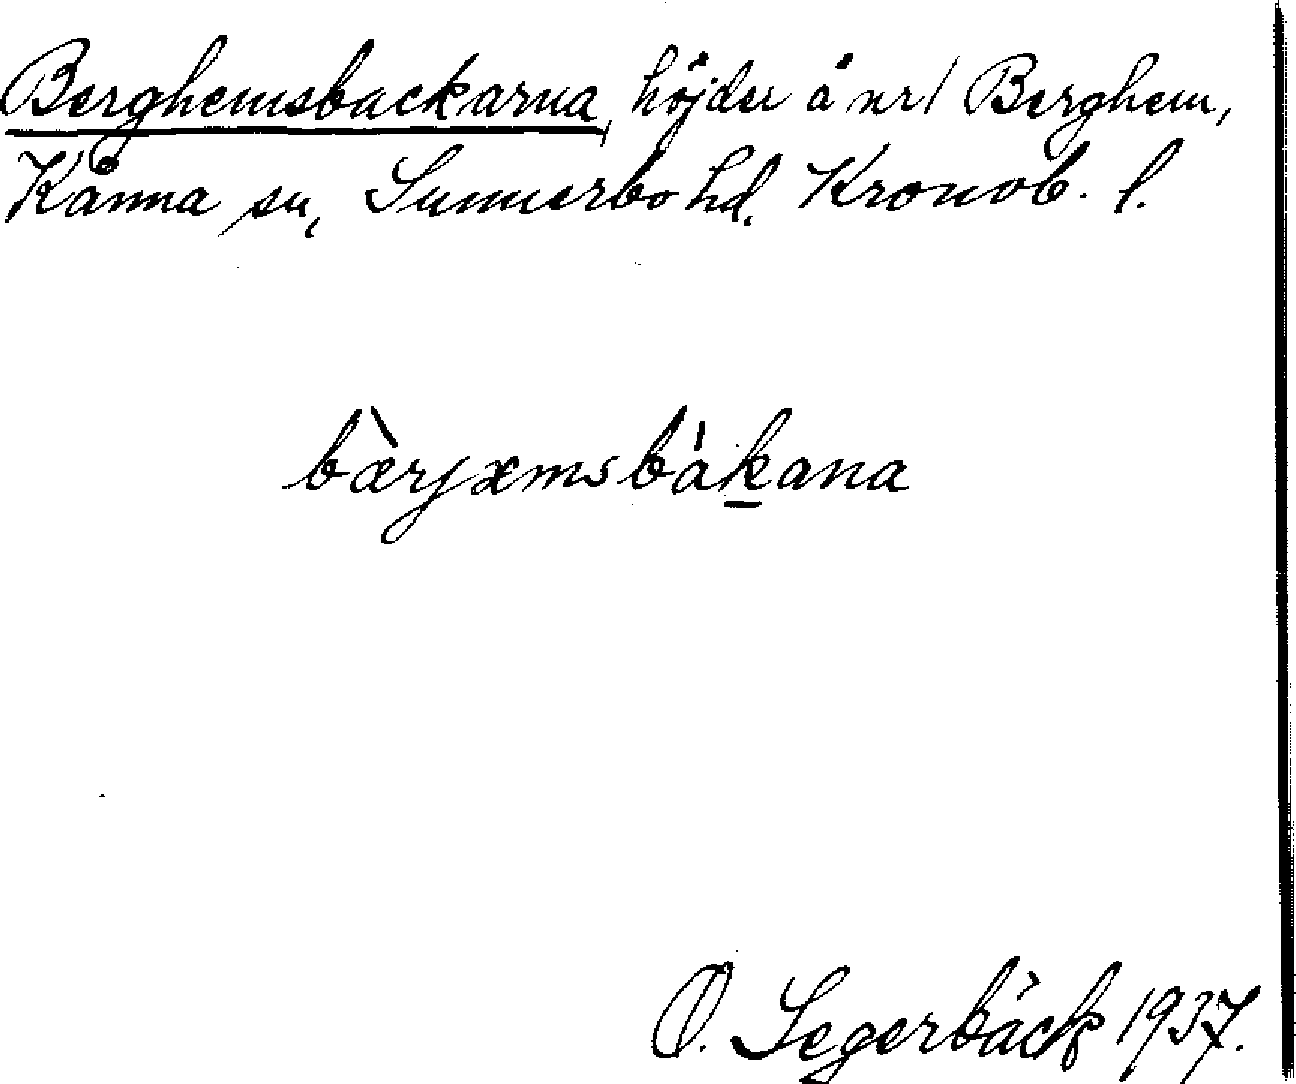 Berghemsbackarna, höjder å nr 1 Berghem,
Kånna sn, Sunnerbo hd. Kronob. l.
bæ̀rjæmsbák̲ana
O. Segerbäck 1937.